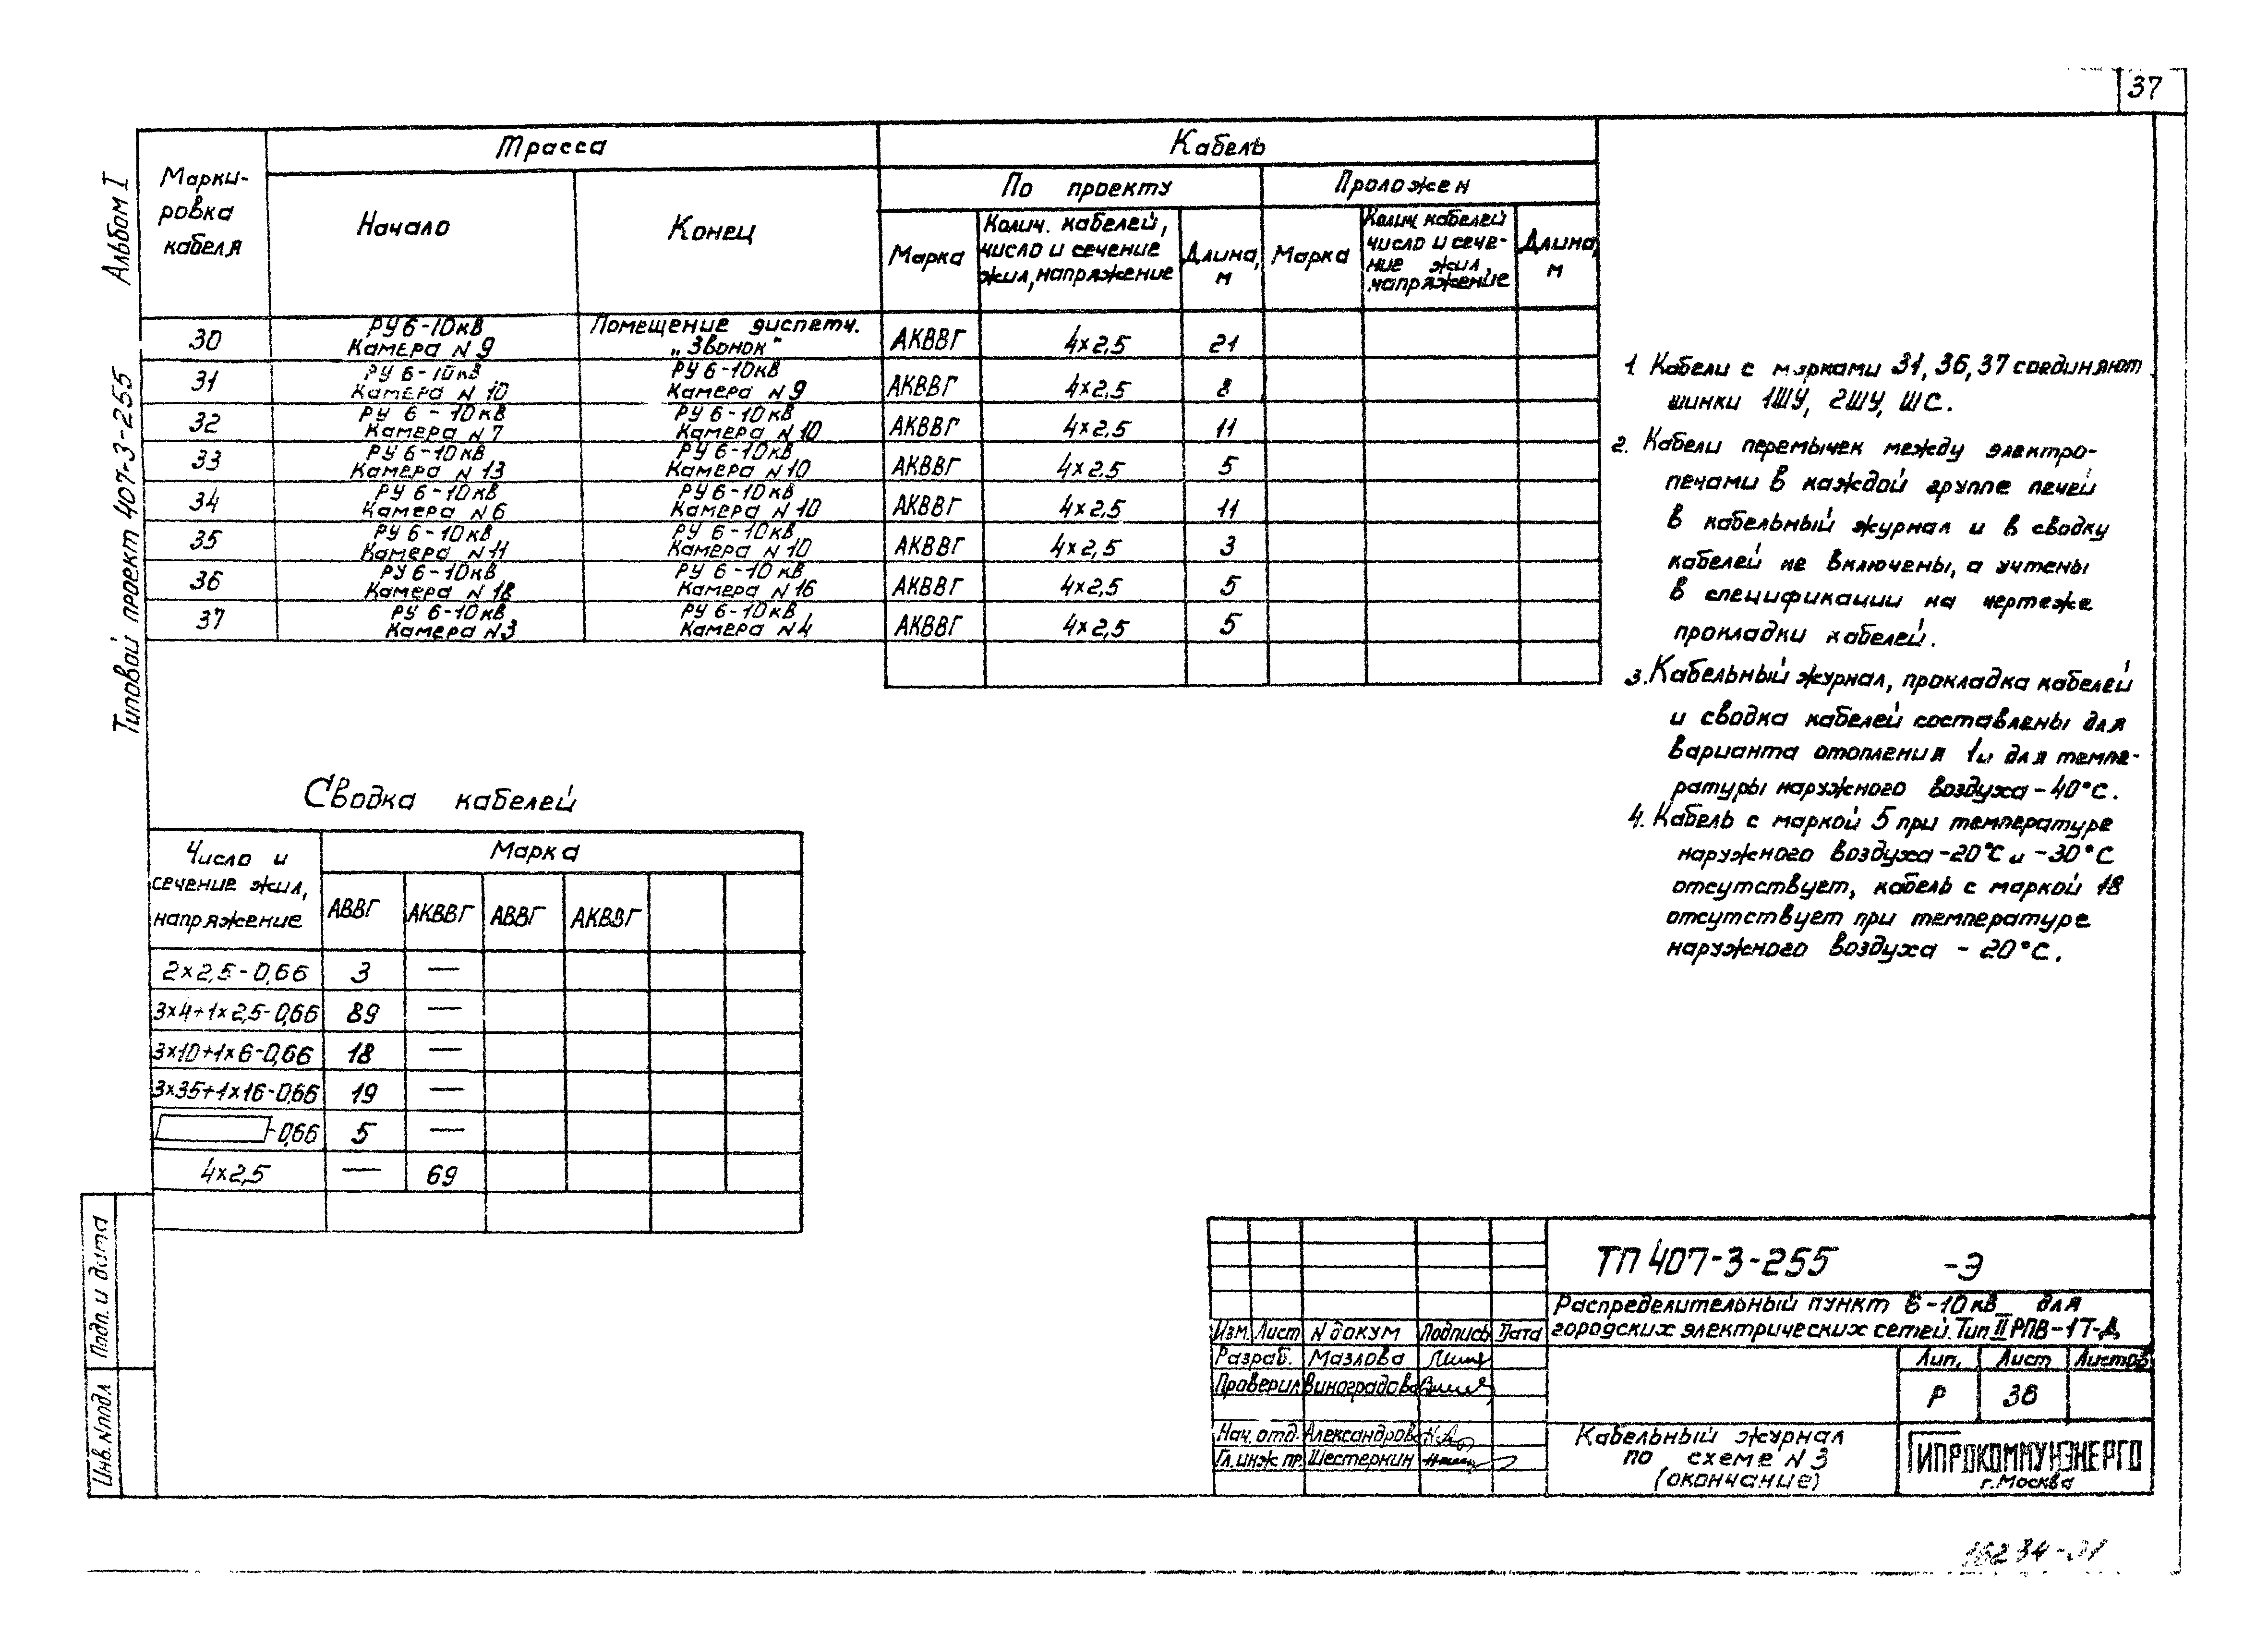 37
Типовой проект 407-3-255 Альбом I
Марки-
ровка
кабеля
Трасса
Кабель
Начало
Конец
По проекту
Проложен
Марка
Колич. кабелей,
число и сечение
жил, напряжение
Длина,
м
Марка
Колич. кабелей
число и сече-
ние жил,
напряжение
Длина,
м
30 РУ 6-10кВ Камера N 9 Помещение диспетч. „Звонок" АКВВГ 4×2,5 21
31 РУ 6-10кВ Камера N 10 РУ 6-10кВ Камера N 9 АКВВГ 4×2,5 8
32 РУ 6-10кВ Камера N 7 РУ 6-10кВ Камера N 10 АКВВГ 4×2,5 11
33 РУ 6-10кВ Камера N 13 РУ 6-10кВ Камера N 10 АКВВГ 4×2.5 5
34 РУ 6-10кВ Камера N 6 РУ 6-10кВ Камера N 10 АКВВГ 4×2,5 11
35 РУ 6-10кВ Камера N 11 РУ 6-10кВ Камера N 10 АКВВГ 4×2,5 3
36 РУ 6-10кВ Камера N 18 РУ 6-10кВ Камера N 16 АКВВГ 4×2,5 5
37 РУ 6-10кВ Камера N 3 РУ 6-10кВ Камера N 4 АКВВГ 4×2,5 5
1 Кабели с марками 31, 36, 37 соединяют
шинки 1ШУ, 2ШУ, ШС.
2. Кабели перемычек между электро-
печами в каждой группе печей
в кабельный журнал и в сводку
кабелей не включены, а учтены
в спецификации на чертеже
прокладки кабелей.
3. Кабельный журнал, прокладка кабелей
и сводка кабелей составлены для
варианта отопления 1 и для темпе-
ратуры наружного воздуха -40°С.
4. Кабель с маркой 5 при температуре
наружного воздуха -20°С и -30°С
отсутствует, кабель с маркой 18
отсутствует при температуре
наружного воздуха - 20°С.
Сводка кабелей
Число и
сечение жил,
напряжение
Марка
АВВГ АКВВГ АВВГ АКВВГ
2×2,5-0,66 3 —
3×4+1×2,5-0,66 89 —
3×10+1×6-0,66 18 —
3×35+1×16-0,66 19 —
-0,66 5 —
4×2,5 — 69
Подп. и дата
Инв. N подл
ТП 407-3-255 -Э
Распределительный пункт 6-10кВ для
городских электрических сетей. Тип II РПВ-1Т-Д
Изм. Лист N докум Подпись Дата
Разраб. Мазлова
Проверил Виноградова
Нач. отд. Александрова
Гл. инж. пр. Шестеркин
Лит. Лист Листов
Р 36
Кабельный журнал
по схеме N 3
(окончание)
ГИПРОКОММУНЭНЕРГО
г. Москва